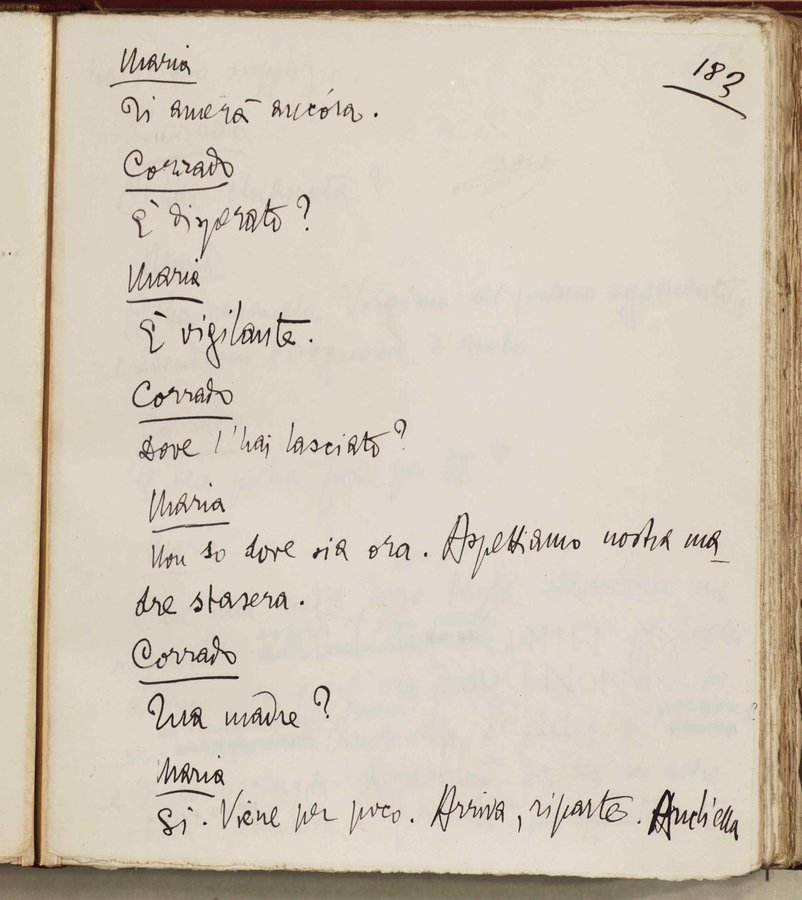 183
Maria
Ti amerà ancóra.
Corrado
È disperato?
Maria
È vigilante.
Corrado
Dove l'hai lasciato?
Maria
Non so dove sia ora. Aspettiamo nostra ma-
dre stasera.
Corrado
Tua madre?
Maria
Sì. Viene per poco. Arriva, riparte. Anch'ella